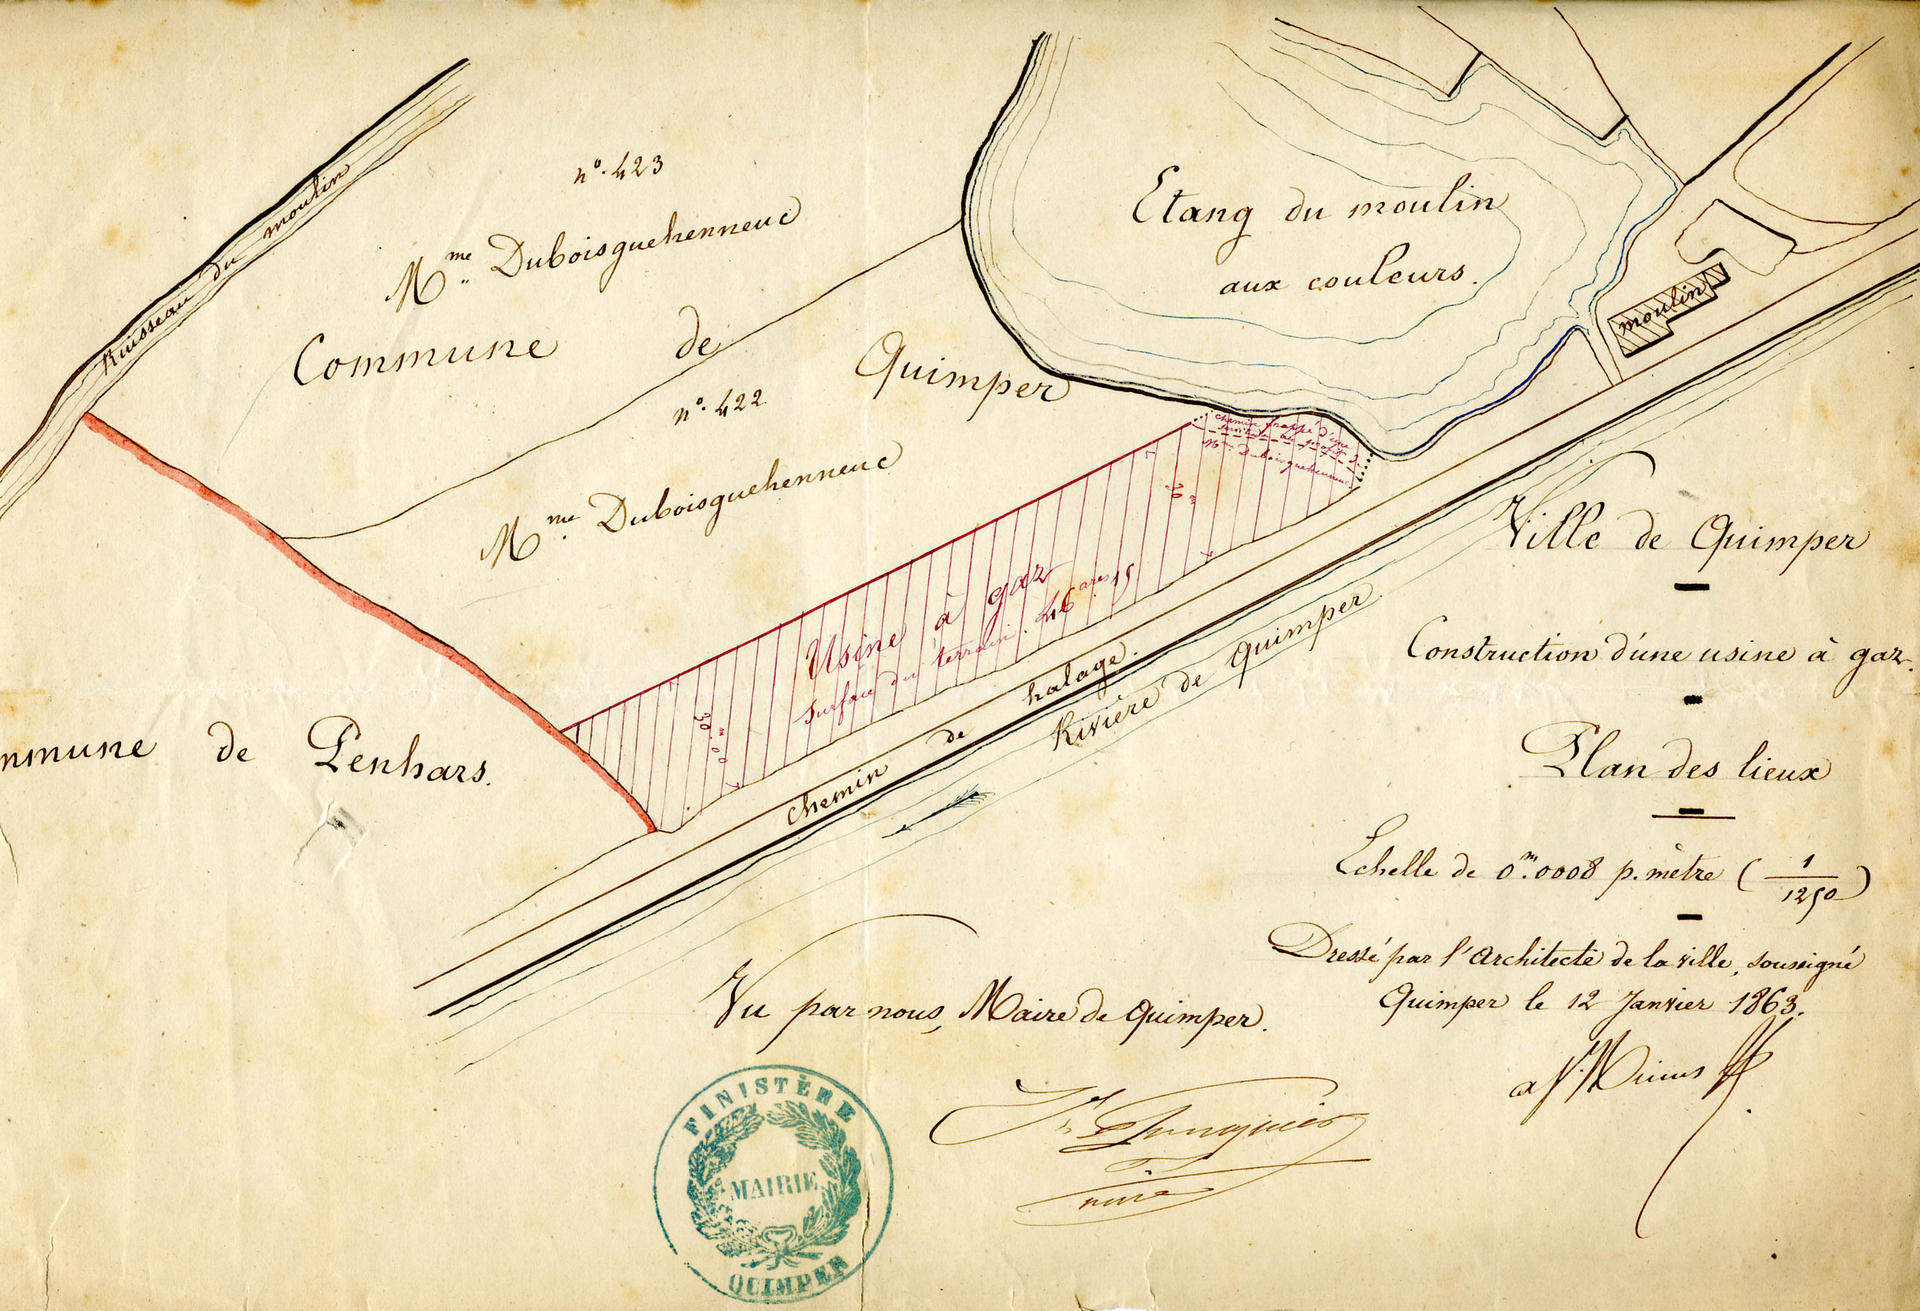 Ruisseau du moulin
n°. 423
Mme. Duboisguehenneuc
Commune de Quimper
n°. 422
Mme. Duboisguehenneuc
Etang du moulin
aux couleurs.
moulin
chemin frappé d'une
servitude au profit de
Mme Duboisguehenneuc
26m
Usine à gaz
Surface du terrain. 46 ares 15
30m.00
chemin de halage.
Rivière de Quimper.
mmune de Penhars.
Ville de Quimper
Construction d'une usine à gaz.
Plan des lieux
Echelle de 0m.0008 p. mètre ( 1/1250 )
Dressé par l'Architecte de la ville, soussigné
Quimper le 12 Janvier 1863.
Vu par nous, Maire de Quimper.
FINISTÈRE
MAIRIE
QUIMPER